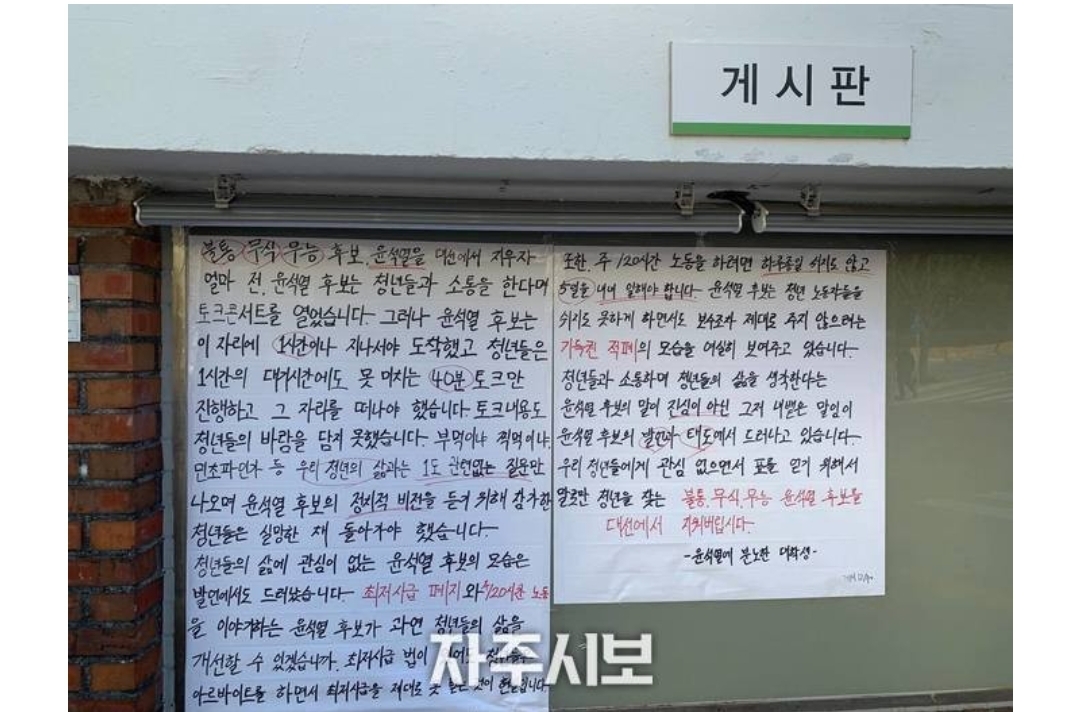 게시판
불통 무식 무능 후보, 윤석열을 대선에서 지우자
얼마 전, 윤석열 후보는 청년들과 소통을 한다며
토크콘서트를 열었습니다. 그러나 윤석열 후보는
이 자리에 1시간이나 지나서야 도착했고 청년들은
1시간의 대기시간에도 못 미치는 40분 토크만
진행하고 그 자리를 떠나야 했습니다. 토크내용도
청년들의 바람을 담지 못했습니다. 부먹이냐 찍먹이냐,
민초파인가 등 우리 청년의 삶과는 1도 관련없는 질문만
나오며 윤석열 후보의 정치적 비전을 듣기 위해 참가한
청년들은 실망한 채 돌아가야 했습니다.
청년들의 삶에 관심이 없는 윤석열 후보의 모습은
발언에서도 드러났습니다. 최저시급 폐지와 주120시간 노동
을 이야기하는 윤석열 후보가 과연 청년들의 삶을
개선할 수 있겠습니까. 최저시급 법이
아르바이트를 하면서 최저시급을 제대로 못 받는 것이 현실입니다
또한, 주 120시간 노동을 하려면 하루종일 쉬지도 않고
5일을 내내 일해야 합니다. 윤석열 후보는 청년 노동자들을
쉬지도 못하게 하면서도 보수조차 제대로 주지 않으려는
기득권 적폐의 모습을 여실히 보여주고 있습니다.
청년들과 소통하며 청년들의 삶을 생각한다는
윤석열 후보의 말이 진심이 아닌 그저 내뱉은 말인이
윤석열 후보의 발언과 태도에서 드러나고 있습니다.
우리 청년들에게 관심 없으면서 표를 얻기 위해서
말로만 청년을 찾는 불통, 무식, 무능 윤석열 후보를
대선에서 지워버립시다.
-윤석열에 분노한 대학생-
자주시보